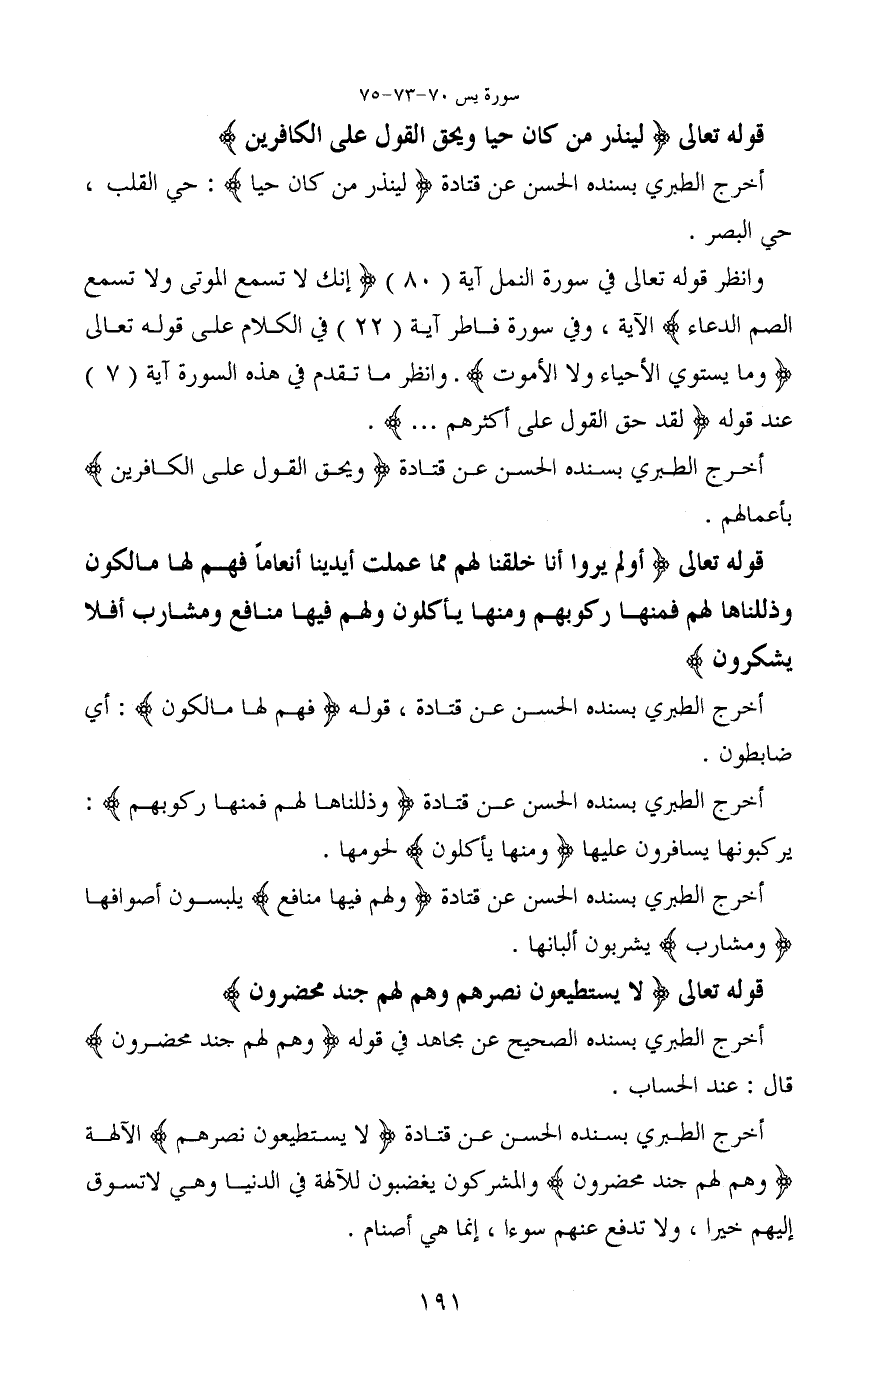 سورة يس ٧٠-٧٣-٧٥
قوله تعالى ﴿ لينذر من كان حيا ويحق القول على الكافرين ﴾
أخرج الطبري بسنده الحسن عن قتادة ﴿ لينذر من كان حيا ﴾ : حي القلب ،
حي البصر .
وانظر قوله تعالى في سورة النمل آية ( ٨٠ ) ﴿ إنك لا تسمع الموتى ولا تسمع
الصم الدعاء ﴾ الآية ، وفي سورة فاطر آية ( ٢٢ ) في الكلام على قوله تعالى
﴿ وما يستوي الأحياء ولا الأموت ﴾ . وانظر ما تقدم في هذه السورة آية ( ٧ )
عند قوله ﴿ لقد حق القول على أكثرهم ... ﴾ .
أخرج الطبري بسنده الحسن عن قتادة ﴿ ويحق القول على الكافرين ﴾
بأعمالهم .
قوله تعالى ﴿ أولم يروا أنا خلقنا لهم مما عملت أيدينا أنعاماً فهم لها مالكون
وذللناها لهم فمنها ركوبهم ومنها يأكلون ولهم فيها منافع ومشارب أفلا
يشكرون ﴾
أخرج الطبري بسنده الحسن عن قتادة ، قوله ﴿ فهم لها مالكون ﴾ : أي
ضابطون .
أخرج الطبري بسنده الحسن عن قتادة ﴿ وذللناها لهم فمنها ركوبهم ﴾ :
يركبونها يسافرون عليها ﴿ ومنها يأكلون ﴾ لحومها .
أخرج الطبري بسنده الحسن عن قتادة ﴿ ولهم فيها منافع ﴾ يلبسون أصوافها
﴿ ومشارب ﴾ يشربون ألبانها .
قوله تعالى ﴿ لا يستطيعون نصرهم وهم لهم جند محضرون ﴾
أخرج الطبري بسنده الصحيح عن مجاهد في قوله ﴿ وهم لهم جند محضرون ﴾
قال : عند الحساب .
أخرج الطبري بسنده الحسن عن قتادة ﴿ لا يستطيعون نصرهم ﴾ الآلهة
﴿ وهم لهم جند محضرون ﴾ والمشركون يغضبون للآلهة في الدنيا وهي لاتسوق
إليهم خيرا ، ولا تدفع عنهم سوءا ، إنما هي أصنام .
١٩١